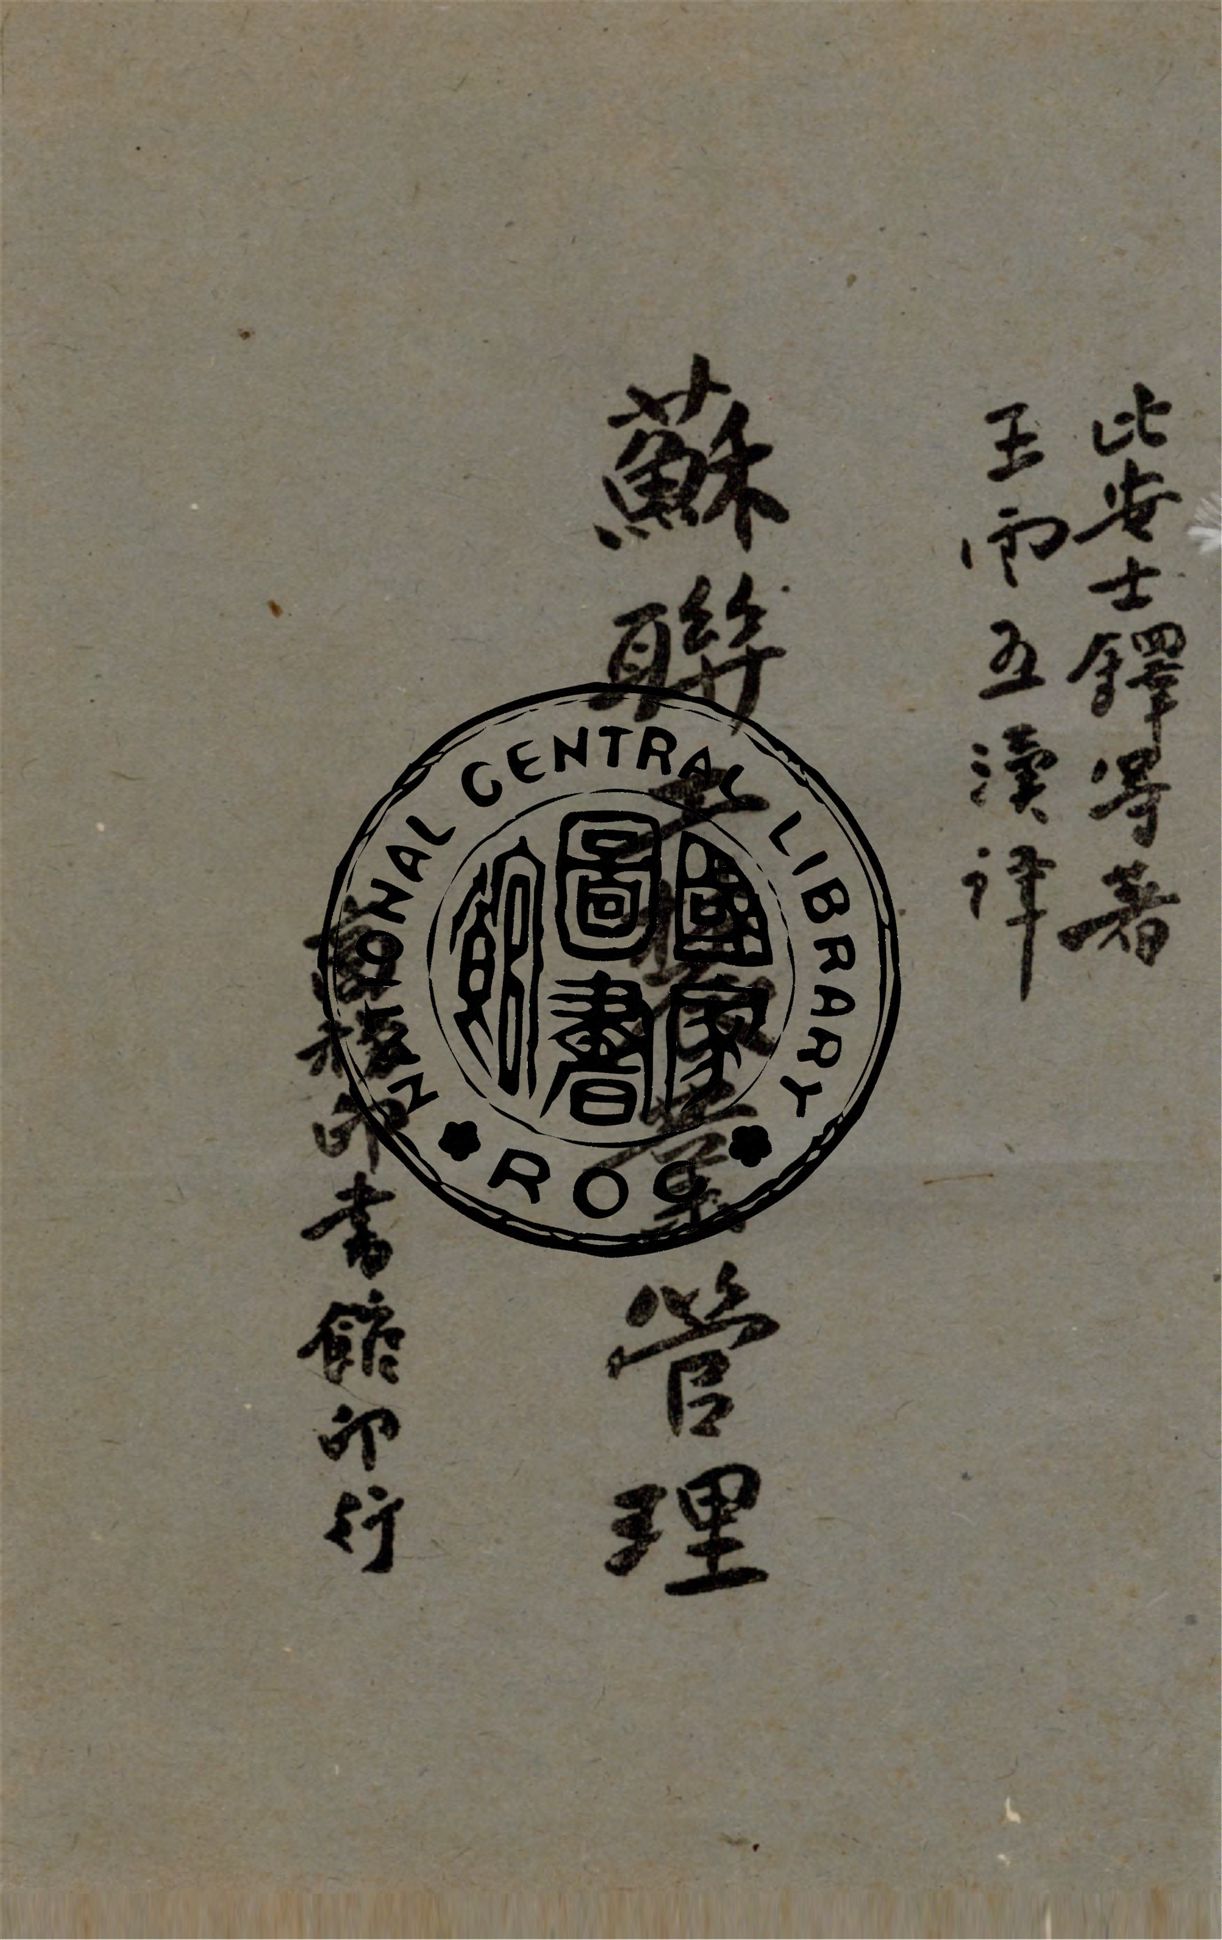 比安士鐸等著
王雲五濃譯
蘇聯工農業管理
商務印書館印行
NATIONAL CENTRAL LIBRARY
國家
圖書
館
ROC